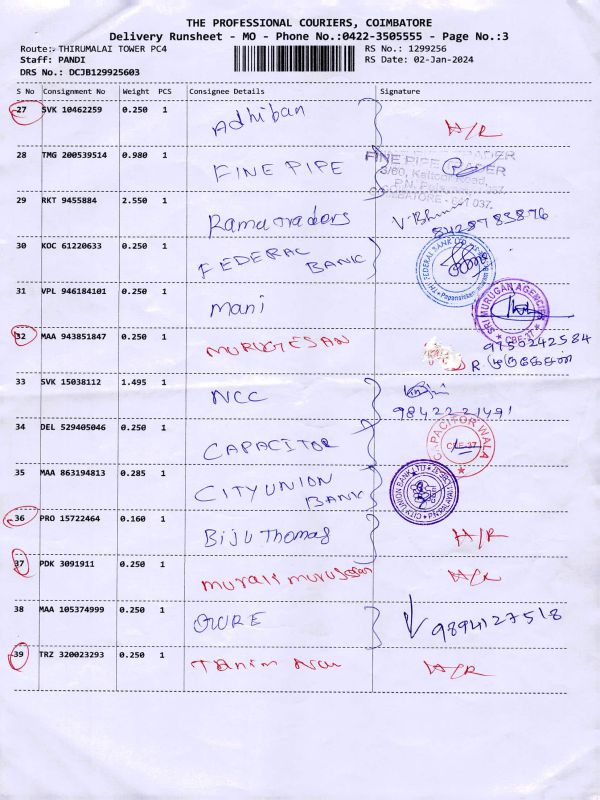 THE PROFESSIONAL COURIERS, COIMBATORE
Delivery Runsheet - MO - Phone No.:0422-3505555 - Page No.:3
Route:- THIRUMALAI TOWER PC4
RS No.: 1299256
Staff: PANDI
RS Date: 02-Jan-2024
DRS No.: DCJB129925603
S No Consignment No Weight PCS Consignee Details Signature
27 SVK 10462259 0.250 1 Adhiban H/R
28 TMG 200539514 0.980 1 FINE PIPE
FINE PIPE TRADER
29 RKT 9455884 2.550 1 Rama traders
30 KOC 61220633 0.250 1 FEDERAL BANK
31 VPL 946184101 0.250 1 Mani
SRI MURUGAN AGENCIES CBE-37
32 MAA 943851847 0.250 1 MURUGESAN
9750242584
R முருகேசன்
33 SVK 15038112 1.495 1 NCC
9842221491
34 DEL 529405046 0.250 1 CAPACITOR
CAPACITOR WALA CBE-37
35 MAA 863194813 0.285 1 CITY UNION BANK
CITY UNION BANK LTD
36 PRO 15722464 0.160 1 Biju Thomas H/R
37 PDK 3091911 0.250 1 murali murugesan H/R
38 MAA 105374999 0.250 1 9894127518
39 TRZ 320023293 0.250 1 H/R